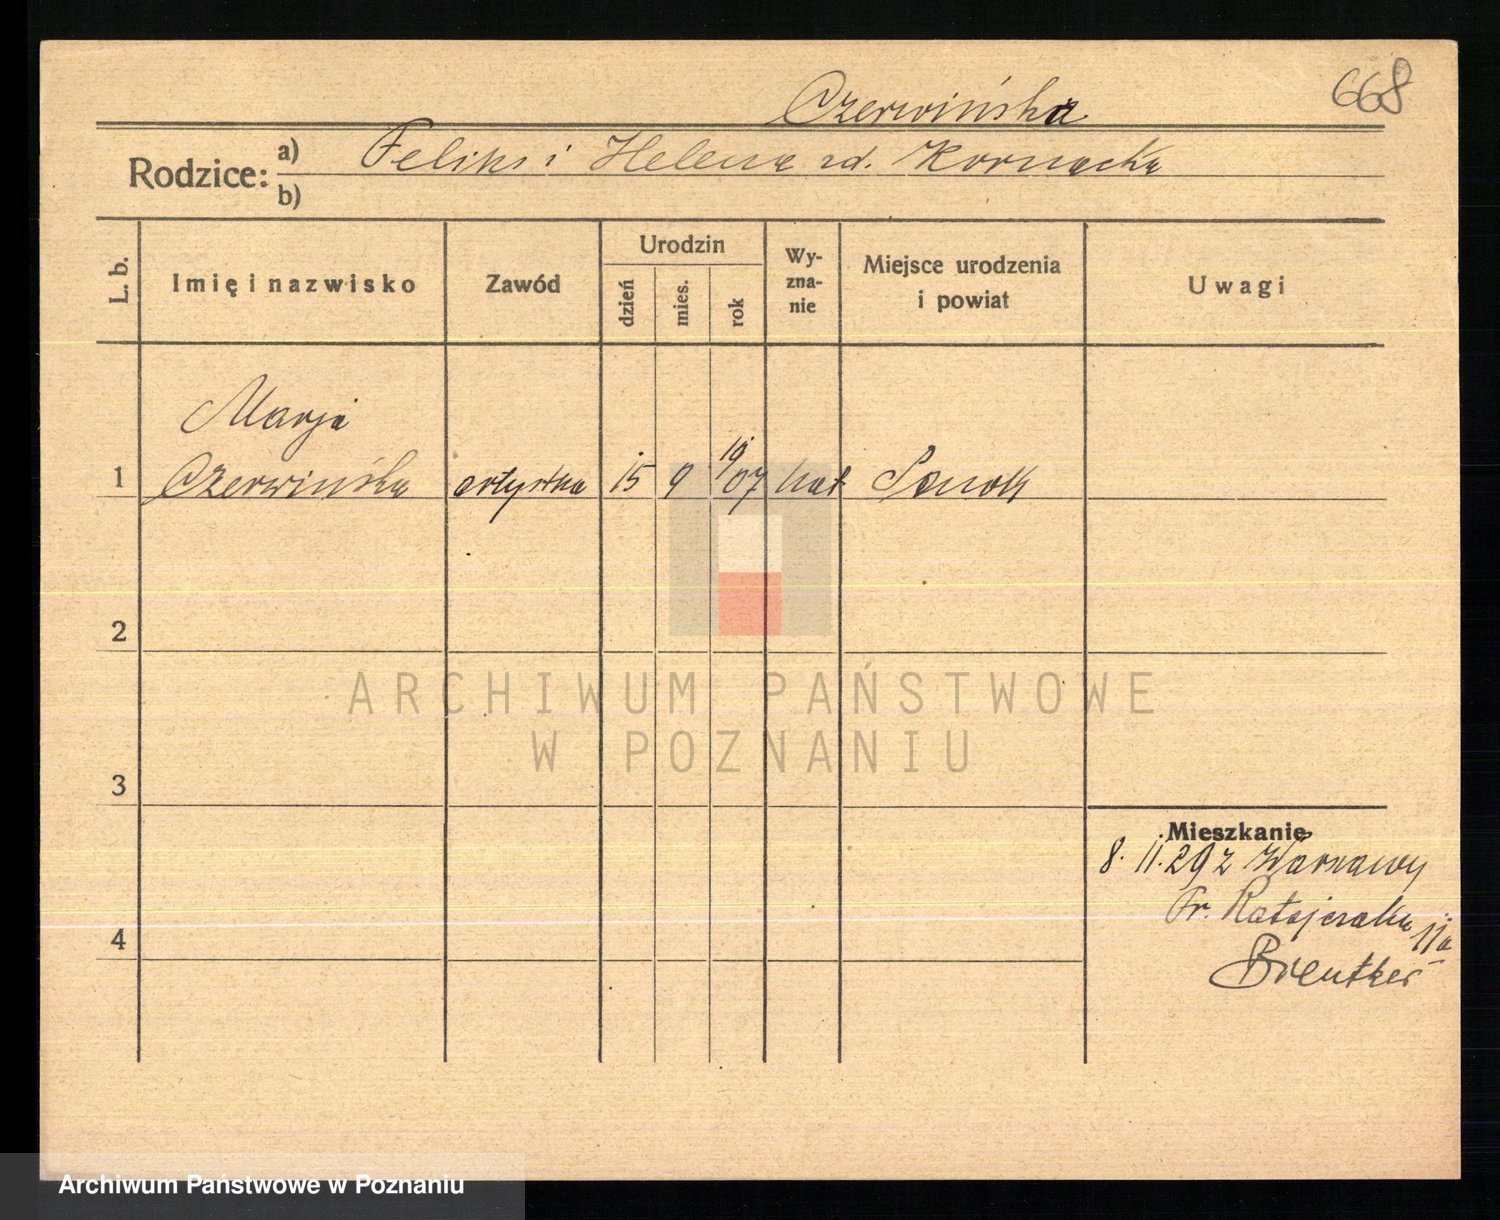 668
Czerwińska
Rodzice: a) Feliks i Helena zd. Kornacka
b)
L. b.
Imię i nazwisko
Zawód
Urodzin
dzień
mies.
rok
Wy-
zna-
nie
Miejsce urodzenia
i powiat
Uwagi
Marja
1 Czerwińska artystka 15 9 1907 kat Sanok
2
3
4
Mieszkanie
8. 11. 29 z Warszawy
Fr. Ratajczaka 11a
ARCHIWUM PAŃSTWOWE
W POZNANIU
Archiwum Państwowe w Poznaniu